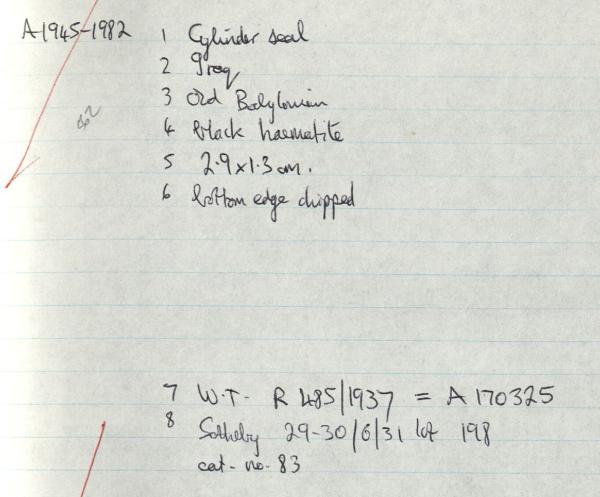 A 1945-1982 1 Cylinder seal
2 Iraq
3 Old Babylonian
4 black haematite
5 2.9 x 1.3 cm.
6 bottom edge chipped
7 W.T. R 485/1937 = A 170325
8 Sotheby 29-30/6/31 lot 198
cat. no. 83